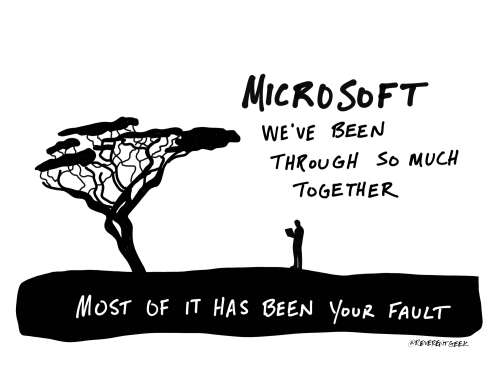 MICROSOFT
WE'VE BEEN
THROUGH SO MUCH
TOGETHER
MOST OF IT HAS BEEN YOUR FAULT
@REVERENTGEEK